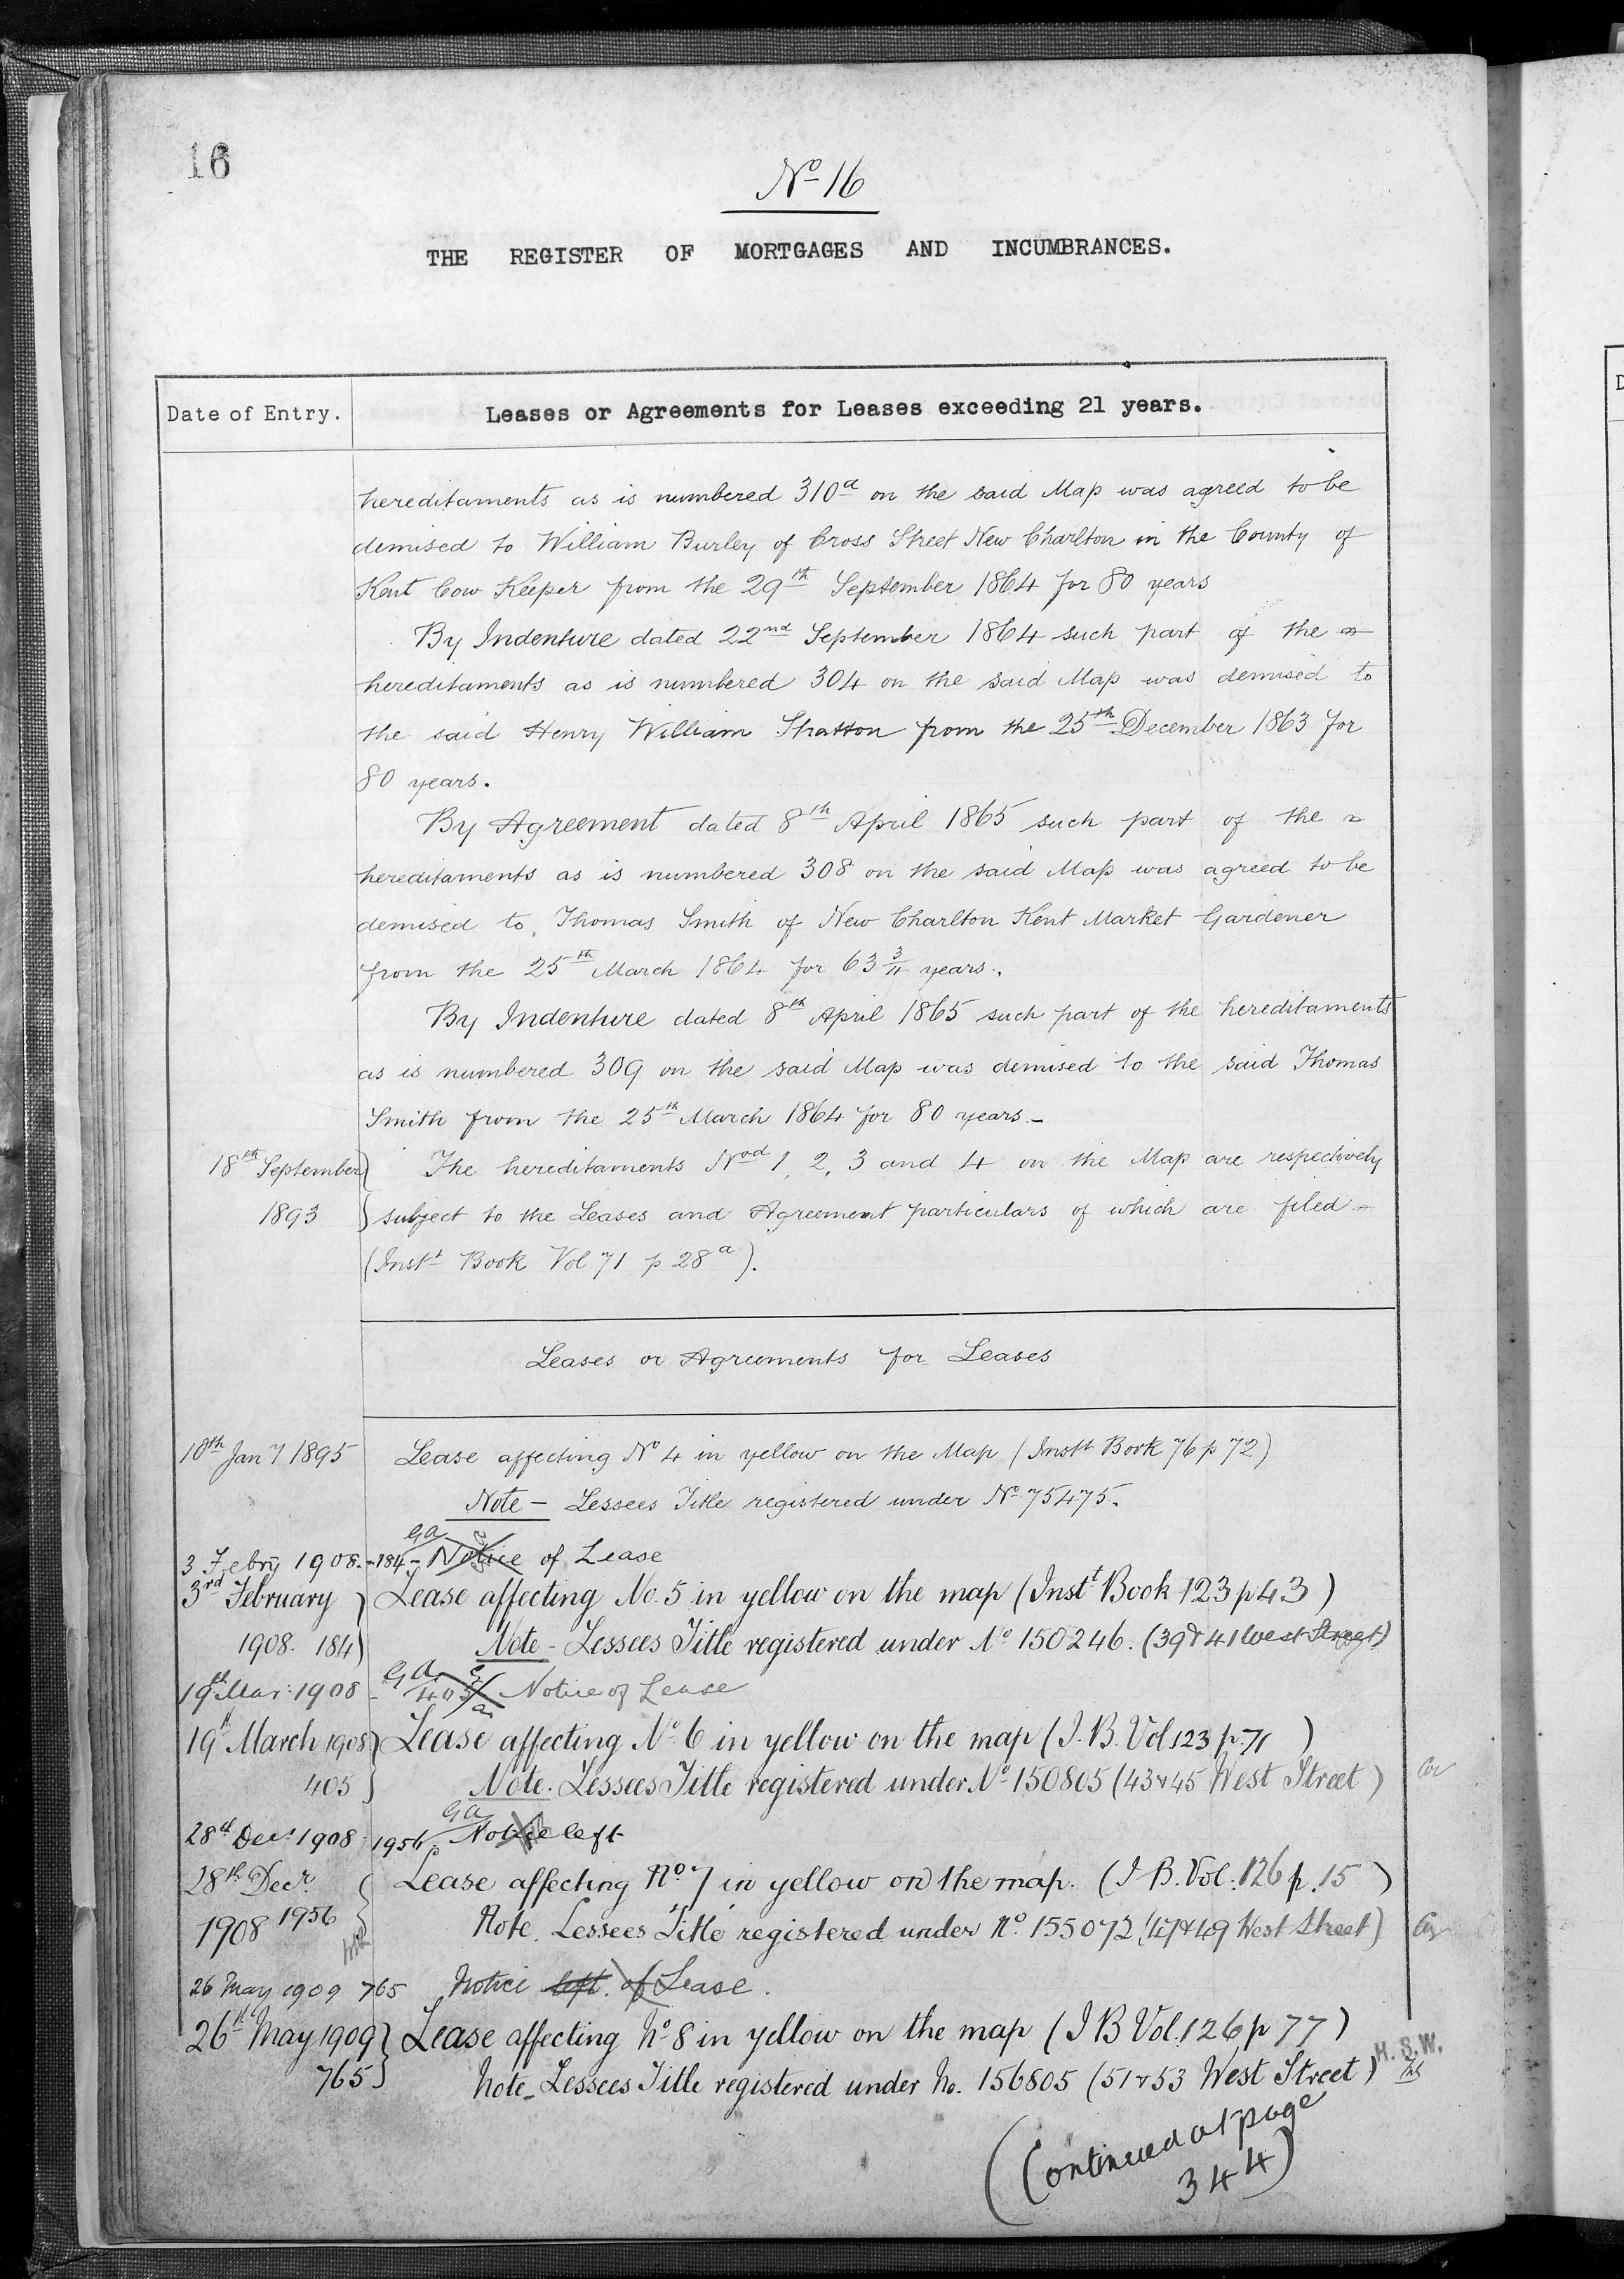 16
No 16
THE REGISTER OF MORTGAGES AND INCUMBRANCES.
Date of Entry.
Leases or Agreements for Leases exceeding 21 years.
hereditaments as is numbered 310a on the said Map was agreed to be
demised to William Burley of Cross Street New Charlton in the County of
Kent Cow Keeper from the 29th September 1864 for 80 years
By Indenture dated 22nd September 1864 such part of the
hereditaments as is numbered 304 on the said Map was demised to
the said Henry William Stratton from the 25th December 1863 for
80 years.
By Agreement dated 8th April 1865 such part of the
hereditaments as is numbered 308 on the said Map was agreed to be
demised to Thomas Smith of New Charlton Kent Market Gardener
from the 25th March 1864 for 63 3/4 years.
By Indenture dated 8th April 1865 such part of the hereditaments
as is numbered 309 on the said Map was demised to the said Thomas
Smith from the 25th March 1864 for 80 years.-
18th September } The hereditaments Nod 1, 2, 3 and 4 on the Map are respectively
1893 } subject to the Leases and Agreement particulars of which are filed
(Instt Book Vol 71 p 28a).
Leases or Agreements for Leases
10th Jany 1895 Lease affecting No 4 in yellow on the Map (Instt Book 76 p 72)
Note - Lessees Title registered under No 75475.
GA
3 Febry 1908. - 184 - Notice of Lease
3rd February } Lease affecting No. 5 in yellow on the map (Instt Book 123 p 43)
1908. 184 } Note - Lessees Title registered under No 150246. (39 & 41 West Street)
GA
19th Mar: 1908 - 405 Notice of Lease
19th March 1908 } Lease affecting No 6 in yellow on the map (I.B. Vol 123 p. 71 )
405 } Note. Lessees Title registered under No 150805 (43 & 45 West Street)
GA
28th Decr 1908 1956 Notice left
28th Decr { Lease affecting No 7 in yellow on the map. (I B. Vol: 126 p. 15 )
1908 1956 { Note. Lessees Title registered under No. 155072 (47 & 49 West Street)
26 May 1909 765 Notice left. of Lease.
26th May 1909 } Lease affecting No 8 in yellow on the map (I B Vol. 126 p 77)
765 } Note - Lessees Title registered under No. 156805 (51 & 53 West Street)
H. S. W.
(Continued at page
344)